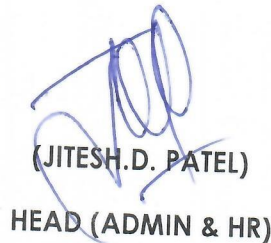 (JITESH.D. PATEL)
HEAD (ADMIN & HR)